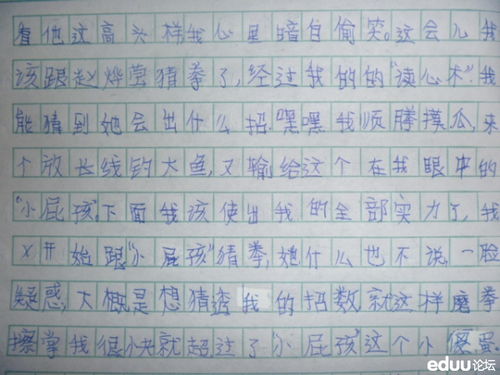 看他这高头样我心里暗自偷笑。这会儿我
该跟赵烨莹猜拳了,经过我的的“读心术”我
能猜到她会出什么招.嘿嘿我顺腾摸瓜,来
个放长线钓大鱼,又输给这个在我眼中的
“小屁孩”下面我该使出我的全部实力了,我
又开始跟“小屁孩”猜拳,她什么也不说,一脸
疑惑,大概是想猜透我的招数就这样磨拳
擦掌我很小夫就超过了“小屁孩”这个小
eduu论坛